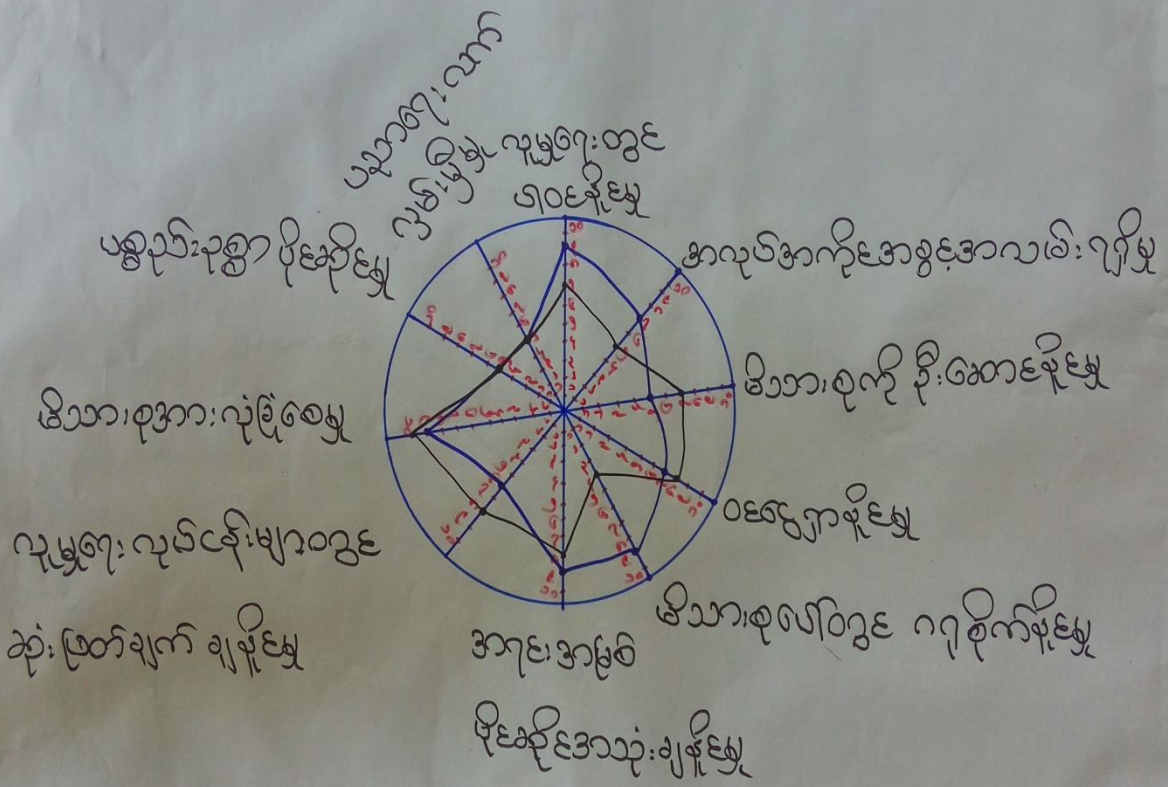 ပညာရေးလက်
လှမ်းမှီမှု
လူမှုရေးတွင်
ပါဝင်နိုင်မှု
အလုပ်အကိုင်အခွင့်အလမ်းရရှိမှု
မိသားစုကို ဦးဆောင်နိုင်မှု
ဝင်ငွေရှာနိုင်မှု
မိသားစုပေါ်တွင် ဂရုစိုက်နိုင်မှု
အရင်းအမြစ်
ပိုင်ဆိုင်အသုံးချနိုင်မှု
လူမှုရေး လုပ်ငန်းများတွင်
ဆုံးဖြတ်ချက် ချနိုင်မှု
မိသားစုအားလုံခြုံစေမှု
ပစ္စည်းဥစ္စာ ပိုင်ဆိုင်မှု